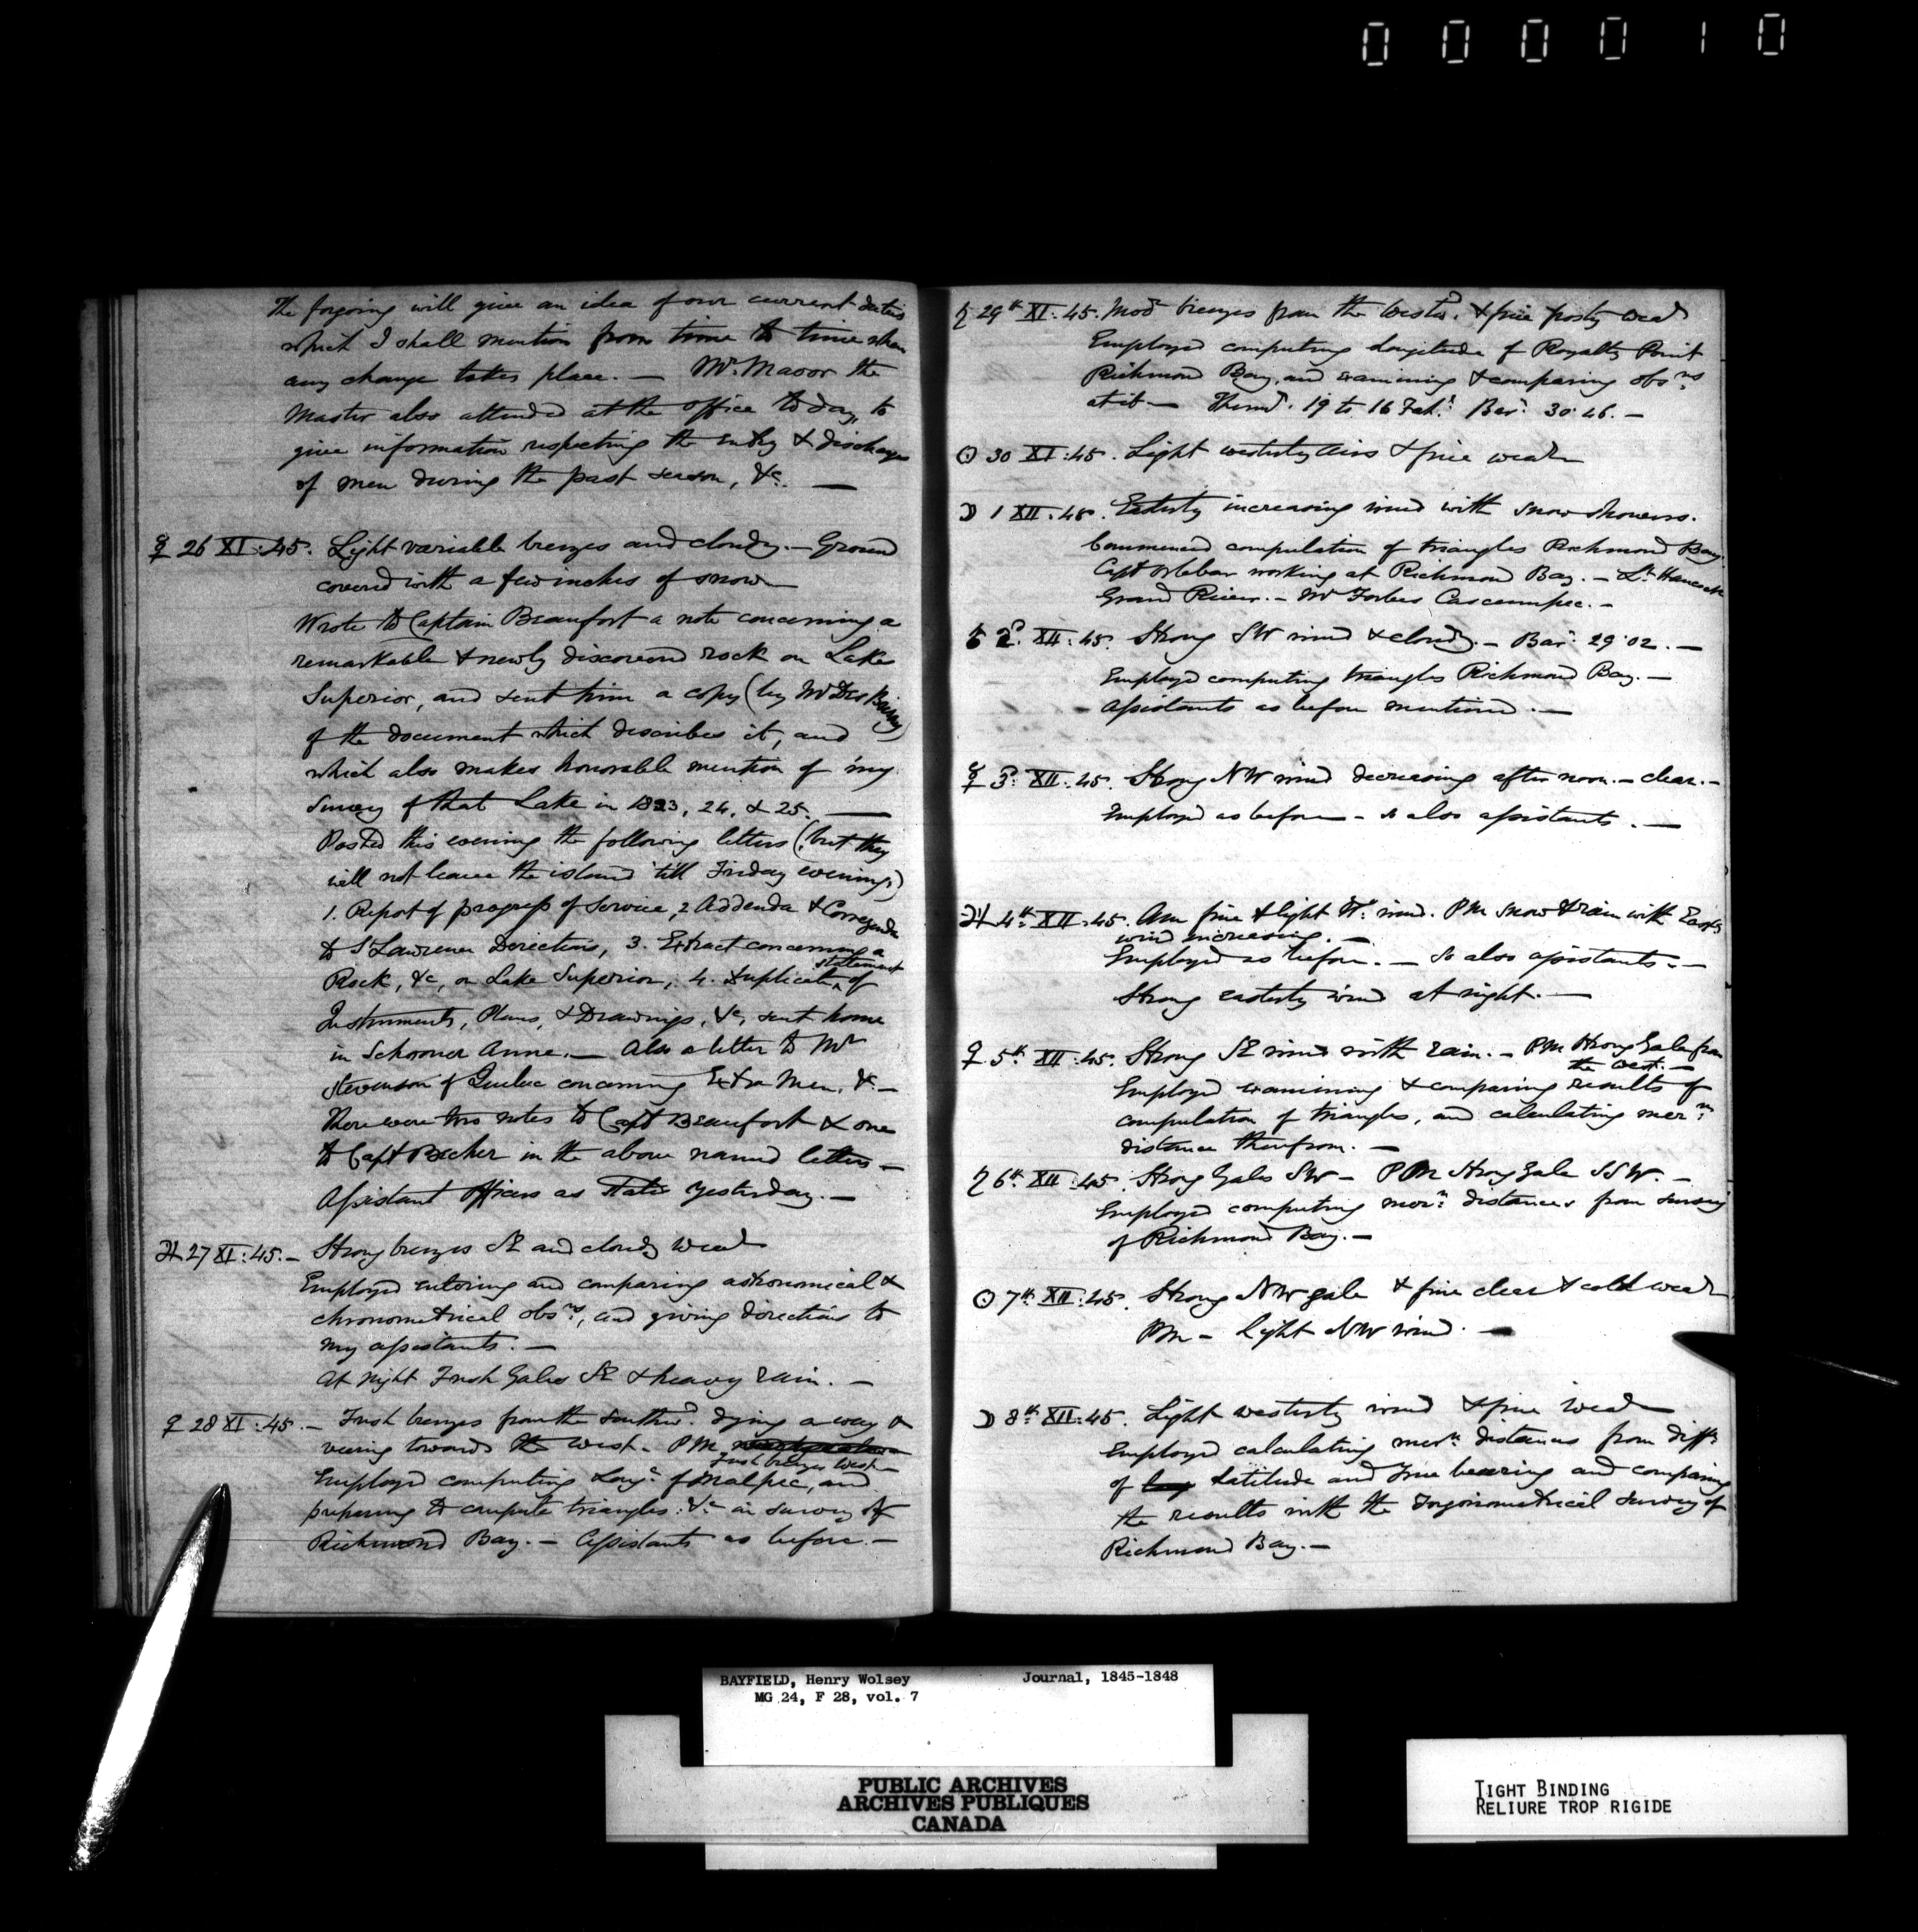 000010
The forgoing will give an idea of our current duties
which I shall mention from time to time when
any change takes place. — Mr. the
Master also attended at the office to day, to
give information respecting the entry & discharge
of men during the past season, &c. —
☿ 26 XI:45. Light variable breezes and cloudy. — Ground
covered with a few inches of snow —
Wrote to Captain Beaufort a note concerning a
remarkable & newly discovered rock on Lake
Superior, and sent him a copy (by Mr Des Brisay)
of the document which describes it, and
which also makes honorable mention of my
Survey of that Lake in 1823, 24, & 25. —
Posted this evening the following letters (but they
will not leave the island 'till Friday evening)
1. Report of progress of Service, 2 Addenda & Corregenda
to St Lawrence Directions, 3. Extract concerning a
Rock, &c, on Lake Superior, 4. Duplicate statement of
Instruments, Plans, & Drawings, &c, sent home
in Schooner Anne. — Also a letter to Mr
Stevenson of Quebec concerning Extra Men, &c —
There were two notes to Capt Beaufort & one
to Capt Becher in the above named letters —
Assistant Officers as stated yesterday. —
♃ 27 XI:45. — Strong breezes SE and cloudy wear
Employed entering and comparing astronomical &
chronometrical obsns, and giving directions to
my assistants. —
At Night Fresh Gales SE & heavy rain. —
♀ 28 XI:45. — Fresh breezes from the Southwd. dying away &
veering towards the West — PM
Fresh breezes West —
Employed computing Longe of Malpec, and
preparing to compute triangles &c in survey of
Richmond Bay. — Assistants as before. —
♄ 29th XI:45. Modr breezes from the Westwd. & fine frosty wear
Employed computing Longitude of Royalty Point
Richmond Bay, and examining & comparing obsns
at it — Thermr. 19 to 16 Fah: Bar: 30.46. —
☉ 30 XI:45. Light westerly airs & fine wear
☽ 1 XII:45. Easterly increasing wind with snow showers.
Commenced computation of triangles Richmond Bay.
Capt Orlebar working at Richmond Bay. — Lt Hancock
Grand River. — Mr Forbes Cascumpec. —
♂ 2d. XII:45. Strong SW wind & cloudy. — Bar: 29.02. —
Employed computing triangles Richmond Bay. —
Assistants as before mentioned. —
☿ 3d: XII:45. Strong NW wind decreasing after noon. — clear. —
Employed as before — so also assistants. —
♃ 4th XII:45. Am fine & light wind. PM snow & rain with Easty
wind increasing. —
Employed as before. — So also assistants. —
Strong easterly wind at night. —
♀ 5th XII:45. Strong SE wind with rain. — PM Strong Gale from
the West. —
Employed examining & comparing results of
computation of triangles, and calculating mern:
distance therefrom. —
♄ 6th XII:45. Strong Gales SW — PM Strong Gale SSW. —
Employed computing mern: distances from survey
of Richmond Bay. —
☉ 7th XII:45. Strong NW gale & fine clear & cold wear
PM — Light NW wind. —
☽ 8th XII:45. Light westerly wind & fine wear
Employed calculating mern distances from diffce
of Latitude and True bearing and comparing
the results with the Trigonometrical survey of
Richmond Bay. —
BAYFIELD, Henry Wolsey Journal, 1845-1848
MG 24, F 28, vol. 7
PUBLIC ARCHIVES
ARCHIVES PUBLIQUES
CANADA
TIGHT BINDING
RELIURE TROP RIGIDE